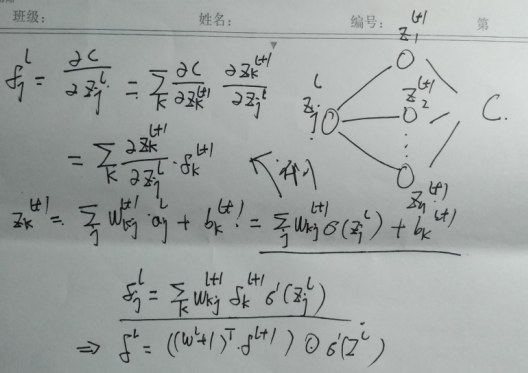 班级： 姓名： 编号： 第
δ_j^l = ∂C/∂z_j^l = Σ_k ∂C/∂z_k^{l+1} ∂z_k^{l+1}/∂z_j^l
z_1^{l+1}
z_j^l z_2^{l+1} C.
⋮
z_n^{l+1}
= Σ_k ∂z_k^{l+1}/∂z_j^l · δ_k^{l+1}
z_k^{l+1} = Σ_j w_{kj}^{l+1} · a_j^l + b_k^{l+1} = Σ_j w_{kj}^{l+1} σ(z_j^l) + b_k^{l+1}
δ_j^l = Σ_k w_{kj}^{l+1} δ_k^{l+1} σ'(z_j^l)
⇒ δ^l = ((w^{l+1})^T · δ^{l+1}) ⊙ σ'(z^l)